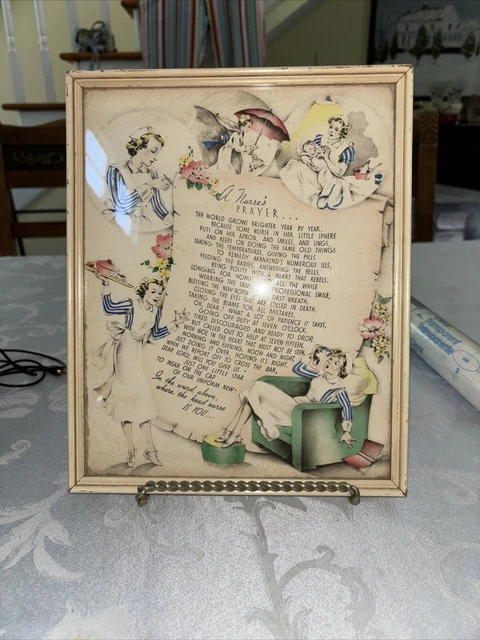 A Nurse's
PRAYER...
THE WORLD GROWS BRIGHTER YEAR BY YEAR,
BECAUSE SOME NURSE IN HER LITTLE SPHERE
PUTS ON HER APRON, AND SMILES, AND SINGS,
AND KEEPS ON DOING THE SAME OLD THINGS
TAKING THE TEMPERATURES, GIVING THE PILLS
TO REMEDY MANKIND'S NUMEROUS ILLS,
FEEDING THE BABIES, ANSWERING THE BELLS,
BEING POLITE WITH A HEART THAT REBELS.
LONGING FOR HOME AND ALL THE WHILE
WEARING THE SAME OLD PROFESSIONAL SMILE,
BLESSING THE NEW BORN BABE'S FIRST BREATH,
CLOSING THE EYES THAT ARE STILLED IN DEATH.
TAKING THE BLAME FOR ALL MISTAKES,
OH, DEAR! WHAT A LOT OF PATIENCE IT TAKES,
GOING OFF DUTY AT SEVEN O'CLOCK,
TIRED, DISCOURAGED AND READY TO DROP
BUT CALLED OUT TO HELP AT SEVEN-FIFTEEN,
WITH WOE IN THE HEART THAT MUST NOT BE SEEN,
MORNING AND EVENING, NOON AND NIGHT,
JUST DOING IT OVER, HOPING IT'S RIGHT.
WHEN WE REPORT OFF TO CROSS THE BAR,
DEAR LORD, WILL YOU GIVE US
JUST ONE LITTLE STAR
TO WEAR ON THE CAP
OF OUR UNIFORM NEW-
In the ward above,
where the head nurse
IS YOU...